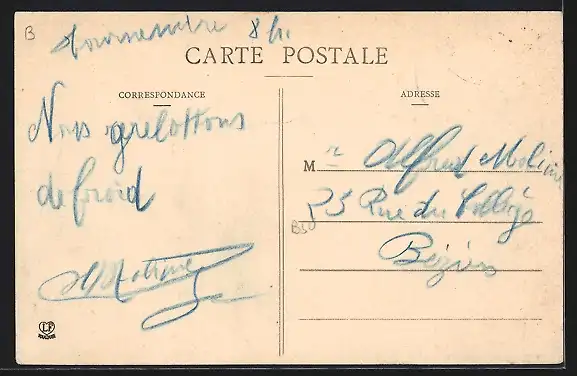 B
Tournemire 8 h.
CARTE POSTALE
CORRESPONDANCE
ADRESSE
Nous grelottons
de froid
M r Alfred Moline
25 Rue du Collège
B50
Béziers
LF
TOULOUSE